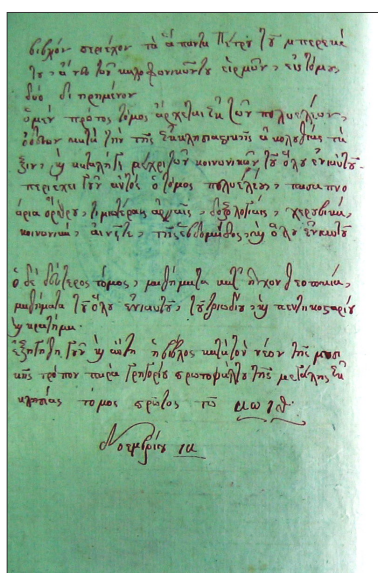 βιβλίον περιέχον τὰ ἅπαντα Πέτρου τοῦ μπερεκέ
του, ἄνευ τῶν καλοφωνικῶν του εἱρμῶν, εἰς τόμους
δύο διῃρημένον
ὁ μὲν πρῶτος τόμος ἄρχεται ἐκ τῶν πολυελέων,
ὁδεύων κατὰ τὴν τῆς ἐκκλησιαστικῆς ἀκολουθίας τά
ξιν, καὶ καταλήγει μέχρι τῶν κοινωνικῶν τοῦ ὅλου ἐνιαυτοῦ.
περιέχει γοῦν αὐτὸς ὁ τόμος πολυελέους, πασαπνο
άρια ὄρθρου, δοξολογίας, χερουβικά,
κοινωνικά, αἰνεῖτε, τῆς ἑβδομάδος, καὶ ὅλου ἐνιαυτοῦ
ὁ δὲ δεύτερος τόμος, μαθήματα κατ' ἦχον θεοτοκία,
μαθήματα τοῦ ὅλου ἐνιαυτοῦ, τοῦ τριωδίου, καὶ πεντηκοσταρίου
καὶ κρατήματα.
ἐξηγήθη γοῦν καὶ αὕτη ἡ βίβλος κατὰ τὸν νέον τῆς μουσι
κῆς τρόπον παρὰ Γρηγορίου πρωτοψάλτου τῆς μεγάλης ἐκ
κλησίας τόμος πρῶτος τῷ αωιθ.
Νοεμβρίου ια